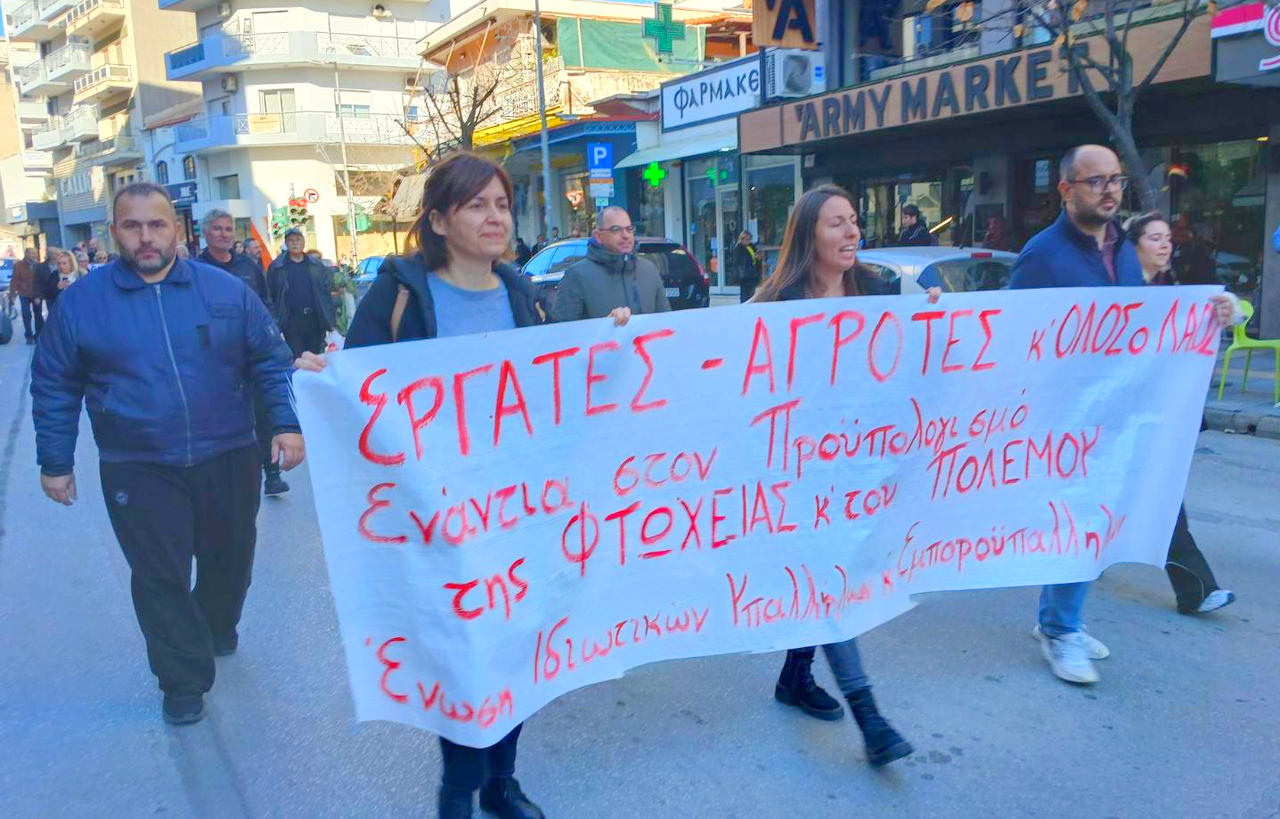 ΦΑΡΜΑΚΕ
ARMY MARKET
P
ΕΡΓΑΤΕΣ - ΑΓΡΟΤΕΣ κ' ΟΛΟΣ ο ΛΑΟΣ
Ενάντια στον Προϋπολογισμό
της ΦΤΩΧΕΙΑΣ κ' του ΠΟΛΕΜΟΥ
Ένωση Ιδιωτικών Υπαλλήλων κ' Εμποροϋπαλλήλ